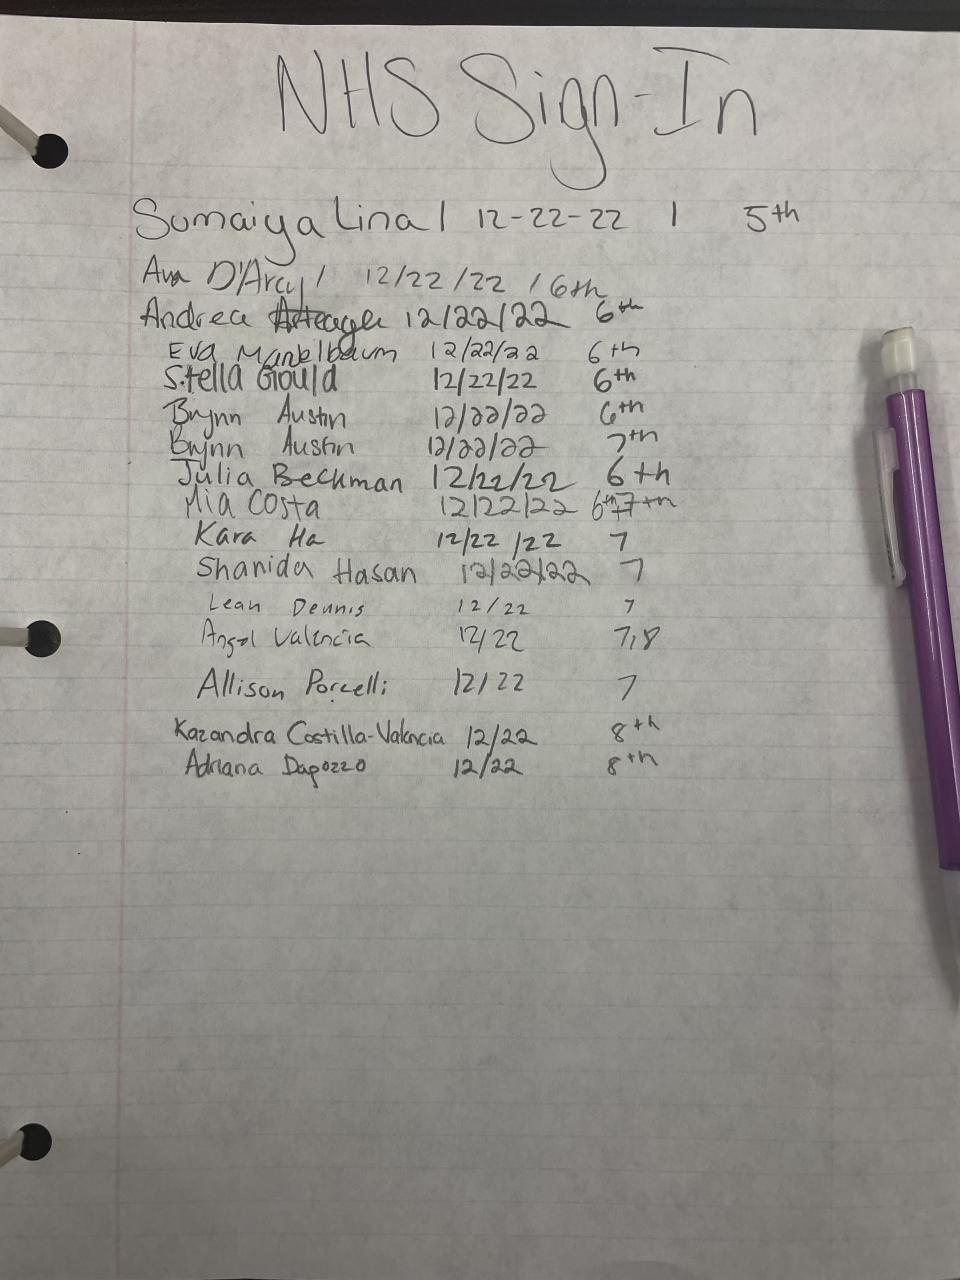 NHS Sign-In
Sumaiya Lina | 12-22-22 | 5th
Ava D'Arcy / 12/22/22 / 6th
Andrea Arteaga 12/22/22 6th
Eva Mankelbaum 12/22/22 6th
Stella Gould 12/22/22 6th
Brynn Austin 12/22/22 6th
Brynn Austin 12/22/22 7th
Julia Beckman 12/22/22 6th
Mia Costa 12/22/22 6th 7th
Kara Ha 12/22/22 7
Shanida Hasan 12/22/22 7
Leah Dennis 12/22 7
Angel Valencia 12/22 7,8
Allison Porcelli 12/22 7
Kazandra Costilla-Valencia 12/22 8th
Adriana Dapozzo 12/22 8th